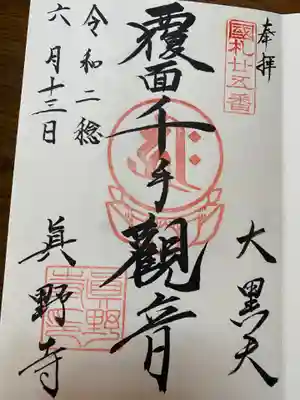 奉拝
國札廿五番
大黒天
覆面千手觀音
令和二稔
六月十三日
眞野寺